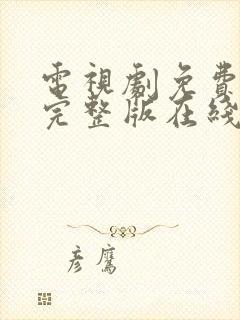 電視劇免費
完整版在綫
彥鷹